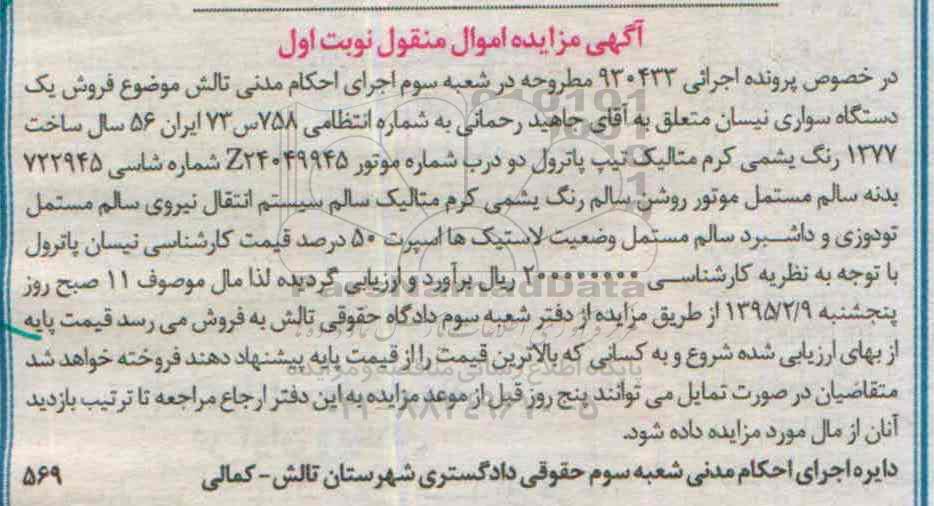 آگهی مزایده اموال منقول نوبت اول
در خصوص پرونده اجرائی ۹۳۰۴۳۳ مطروحه در شعبه سوم اجرای احکام مدنی تالش موضوع فروش یک
دستگاه سواری نیسان متعلق به آقای جاهید رحمانی به شماره انتظامی ۷۵۸س۷۳ ایران ۵۶ سال ساخت
۱۳۷۷ رنگ یشمی کرم متالیک تیپ پاترول دو درب شماره موتور Z۲۴۰۴۹۹۴۵ شماره شاسی ۷۲۲۹۴۵
بدنه سالم مستمل موتور روشن سالم رنگ یشمی کرم متالیک سالم سیستم انتقال نیروی سالم مستمل
تودوزی و داشبرد سالم مستمل وضعیت لاستیک ها اسپرت ۵۰ درصد قیمت کارشناسی نیسان پاترول
با توجه به نظریه کارشناسی ریال برآورد و ارزیابی گردیده لذا مال موصوف ۱۱ صبح روز
پنجشنبه ۱۳۹۵/۲/۹ از طریق مزایده از دفتر شعبه سوم دادگاه حقوقی تالش به فروش می رسد قیمت پایه
از بهای ارزیابی شده شروع و به کسانی که بالاترین قیمت را از قیمت پایه پیشنهاد دهند فروخته خواهد شد
متقاضیان در صورت تمایل می توانند پنج روز قبل از موعد مزایده به این دفتر ارجاع مراجعه تا ترتیب بازدید
آنان از مال مورد مزایده داده شود.
دایره اجرای احکام مدنی شعبه سوم حقوقی دادگستری شهرستان تالش- کمالی ۵۶۹
ParsNamadData